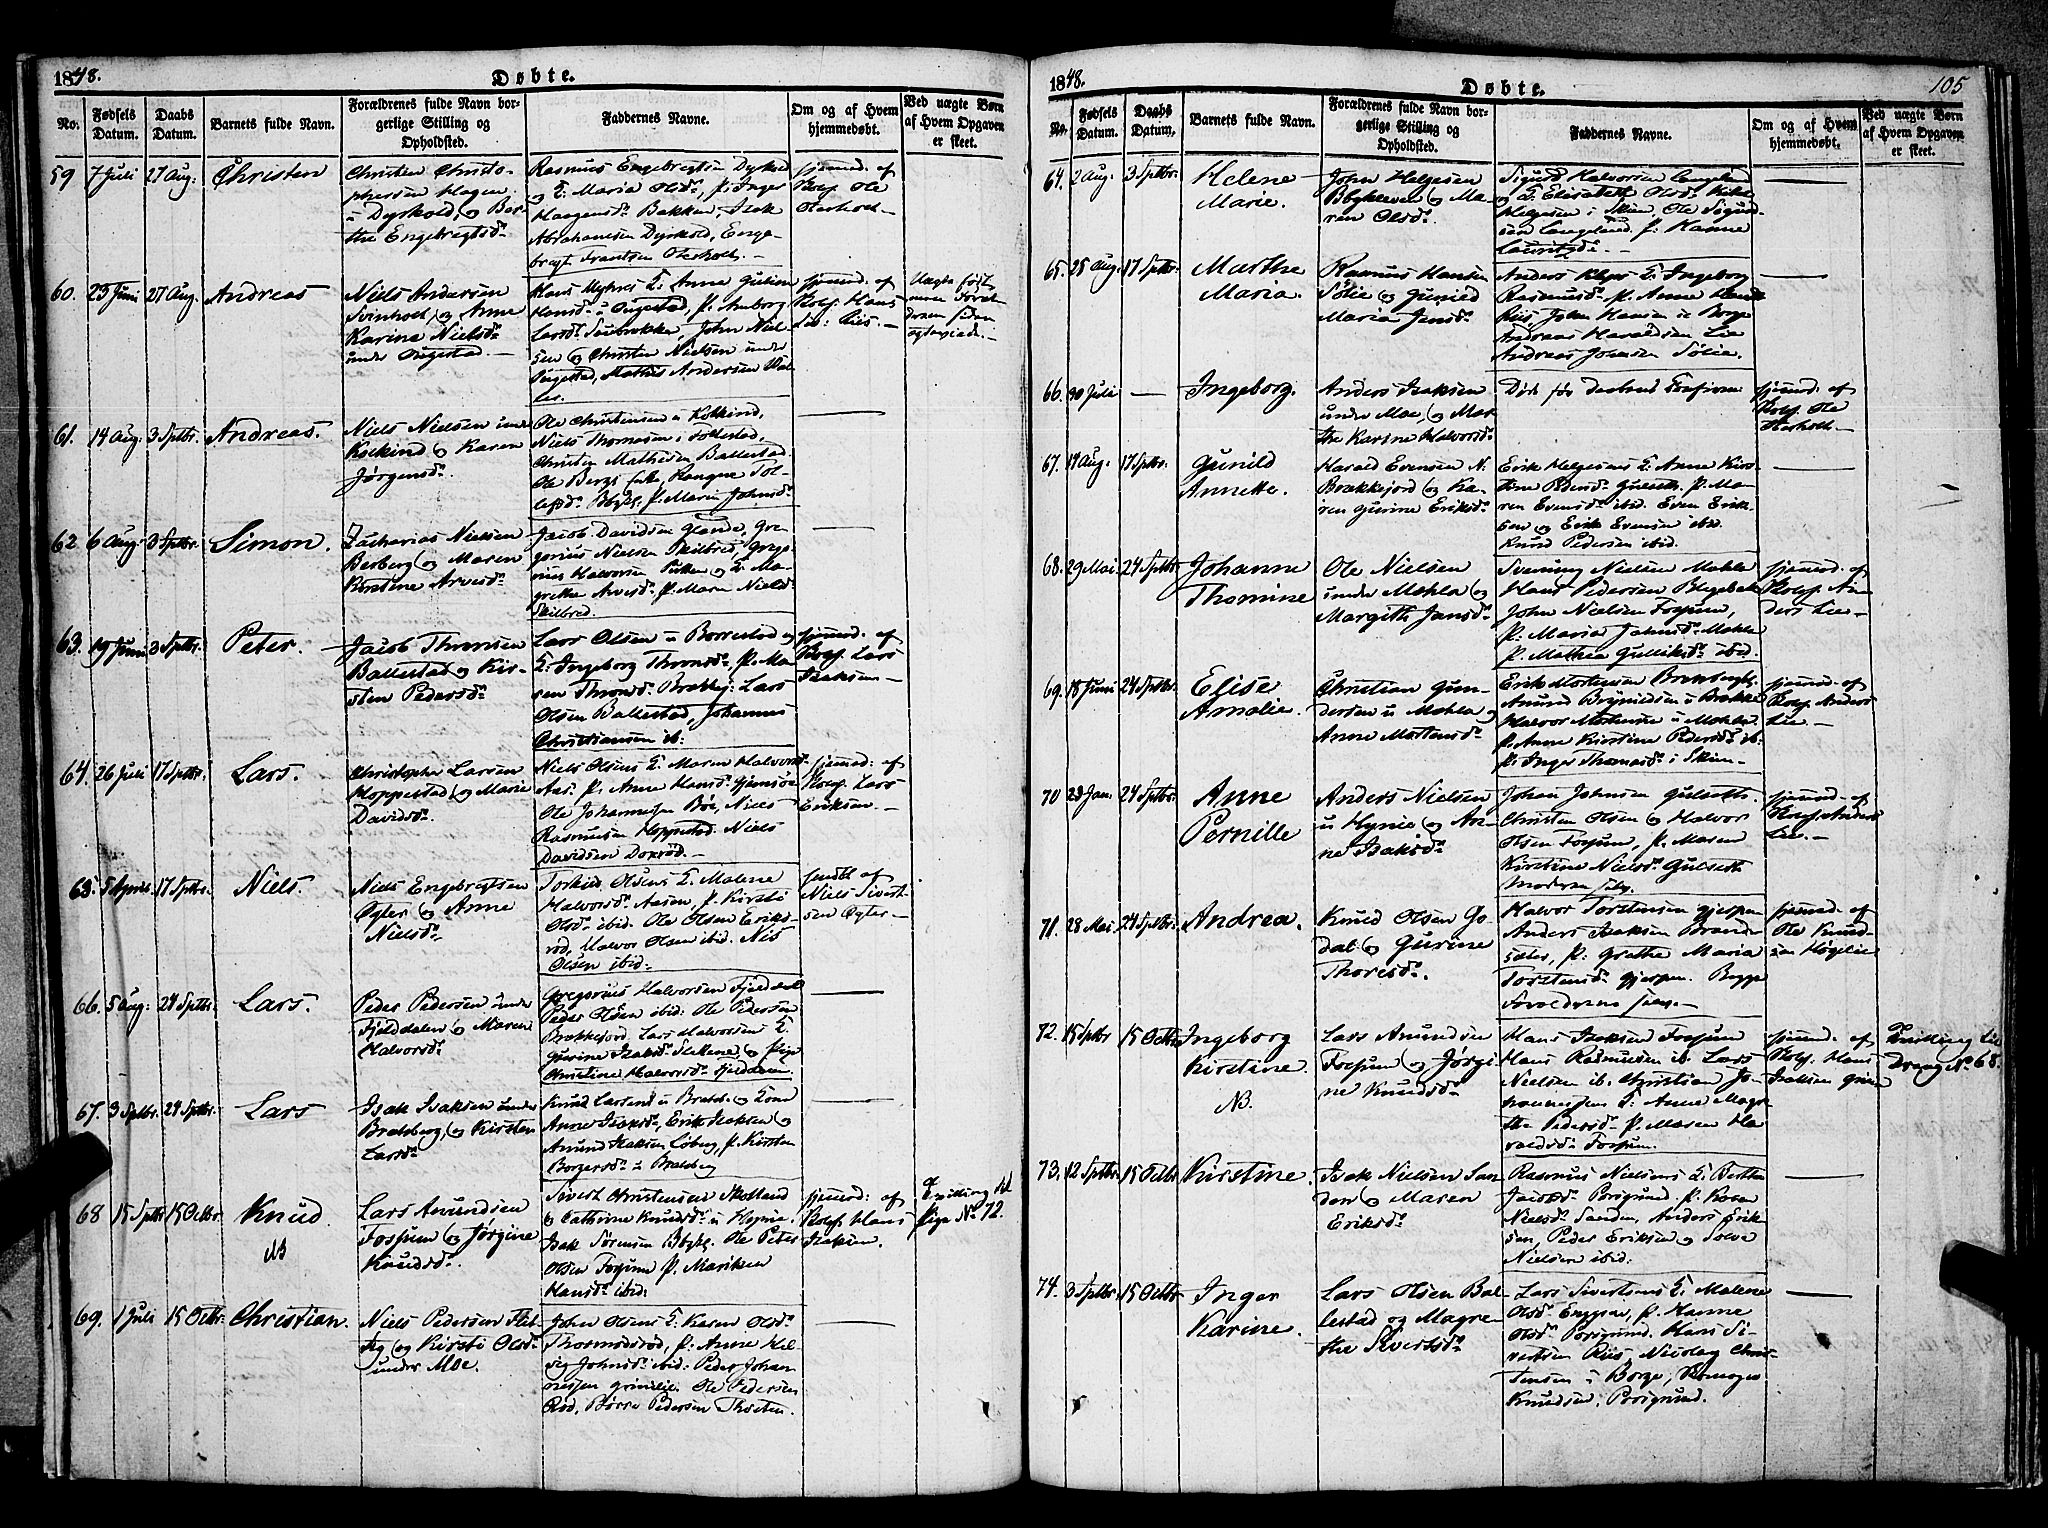 1848. Døbte.
No. Fødsels Datum. Daabs Datum. Barnets fulde Navn. Forældrenes fulde Navn borgerlige Stilling og Opholdsted. Faddernes Navne. Om og af Hvem hjemmedøbt. Ved uægte Børn af Hvem Opgaven er skeet.
59 7 Juli 27 Aug. Christen
Christen Christo-
phersen Hagen
u Dyrkold, og Ber-
the Engebregtsd.
Rasmus Engebregtsen Dyrkold
og E. Maria Olsd. p. Inger
Haagensd. Bakken, Isak
Abrahamsen Dyrkold, Enge-
bregt Frantsen Osterholt.
hjemmed. af
Kolf. Ole
Osterholt
60. 23 Juni 27 Aug. Andreas
Niels Andersen
Svinholt og Anne
Karine Nielsd.
under
Hans Myhres E. Anne Gulien
Hansd.
Larsd. John Niel-
sen og Christen Nielsen under
Mathis Andersen
hjemmed. af
Kolf. Hans
Riis.
Uægte født
men Foræl-
drene siden
egteviede.
61. 14 Aug. 3 Septbr. Andreas.
Niels Nielsen under
Kolkind og Karen
Jørgensd.
Ole Christensen u Kolkind,
Niels Thomesen i Follestad,
Christen Mathisen Ballestad.
Ole Bergs
p. Maria Johnsd.
62 6 Aug 3 Septbr. Simon.
Zacharias Nielsen
Berberg og Maren
Kirstine Arvesd.
Jacob Davidsen Glende, Gre-
gorius Nielsen Skilbred, Grego-
rius Halvorsen og E. Ma-
grethe Arvesd. p. Maren Nielsd.
Skilbred.
63. 19 Juni 3 Septbr. Peter.
Jacob Thronsen
Ballestad og Kir-
sten Pedersd.
Lars Olsen u Borrestad og
E. Ingeborg Thronsd. p. Ma-
ren Thronsd. Brekkej. Lars
Olsen Ballestad, Johannes
Christiansen ib.
hjemmed. af
Kolf. Lars
Isaksen
64. 26 Juli 17 Septbr. Lars.
Christopher Larsen
Hoppestad og Marie
Davidsd.
Niels Olsens E. Maren Halvorsd.
Aas. p. Anne Hansd.
Ole Johannesen Bøe, Niels
Rasmussen Hoppestad. Niels
Davidsen Doxrød.
hjemmed. af
Kolf. Lars
Eriksen
65 5 April 17 Septbr. Niels.
Niels Engebregtsen
Øyter og Anne
Nielsd.
Torkild Olsens E. Malene
Halvorsd. Aasen, p. Kirsti
Olsd. ibid. Ole Olsen Eriks-
rød, Halvor Olsen ibid. Nis
Olsen ibid.
hjmdbt af
Niels Sivert-
sen Øyter
66. 5 Aug. 24 Septbr. Lars.
Peder Pedersen under
Fjelddalen og Maren
Halvorsd.
Gregorius Halvorsen Fjelddal
Peder Olsen ibid. Ole Pedersen
Brekkejord Lars Halvorsen E.
Gurine Isaksd. og Pige
Christine Halvorsd. Fjelddalen
67. 3 Septbr. 24 Septbr. Lars
Isak Isaksen under
Bratsberg, og Kirsten
Larsd.
Knud Larsen u Bratsb. og Kone
Anne Isaksd., Erik Isaksen og
Amund Isaksen Løberg, p. Kirsten
Borgersd. u Bratsberg
68 15 Septbr 15 Octbr. Knud
NB
Lars Amundsen
Fossum og Jørgine
Knudsd.
Sivert Christensen Skotland
og Cathrine Knudsd. u Hynie.
Isak Sørensen Ole Peter
Olsen Fossum p. Mariken
Hansd. ibid.
hjemmed. af
Kolf. Hans
Isaksen.
Tvilling til
Pige No 72.
69. 1 Juli 15 Octbr. Christian.
Niels Pedersen
og Kirsti Olsd.
under Moe.
John Olsens E. Karen Olsd.
Thormodsrød, p. Anne Hel-
vig Johnsd. ibid. Peder Johan-
nessen Grinilie. Ole Pedersen
Rød, Børre Pedersen

1848. Døbte. 105
No. Fødsels Datum. Daabs Datum. Barnets fulde Navn. Forældrenes fulde Navn borgerlige Stilling og Opholdsted. Faddernes Navne. Om og af Hvem hjemmedøbt. Ved uægte Børn af Hvem Opgaven er skeet.
64. 2 Aug. 3 Septbr. Helene
Marie.
John Helgesen
Bbykleven og Ma-
ren Olsd.
Sigurd Halvorsen Langeland
og E. Elisabeth Olsd.
Helgesen i Skien, Ole Sigurd-
sen Langeland. p. Hanne
Lauritzd.
65. 25 Aug. 17 Septbr. Marthe
Maria.
Rasmus Hansen
Sølie og Gunild
Maria Jensd.
Anders E. Ingeborg
Rasmusd. p. Anne
Riis, Johan Hansen u Borge
Andreas Haraldsen Lie
Andreas Johnsen Sølie.
66. 30 Juli — Ingeborg.
Anders Isaksen
under Moe, og Mar-
the Karine Halvorsd.
Døde før Daabens
hjemmed. af
Kolf. Ole
Osterholt
67. 19 Aug. 17 Septbr. Gunild
Annette.
Harald Evensen N.
Brekkejord og Ka-
ren Gurine Eriksd.
Erik Helgesens E. Anne Kirs-
tine Pedersd. Gulseth. p. Ma-
ren Evensd. ibid. Even Erik-
sen og Erik Evensen ibid.
Knud Pedersen ibid.
68. 29 Mai 24 Septbr. Johanne
Thomine
Ole Nielsen
under Mæhla og
Margith Jansd.
Svenung Nielsen Mæhla
Hans Pedersen Blegebak
John Nielsen Fossum,
p. Maria Johnsd. Mæhla
p. Mathea Gulliksd. ibid.
hjemmed. af
Kolf. An-
ders Lie
69. 18 Juni 24 Septbr. Elise
Amalie.
Christian Gun-
dersen u Mæhla og
Anne Mortensd.
Erik Mortensen
Amund Brynildsen u Brekke
Halvor Mortensen u Mæhla.
p. Anne Kirstine Pedersd. ib.
p. Inger Thomasd. i Skien
hjemmed. af
Kolf. Anders
Lie
70 23 Jan. 24 Septbr. Anne
Pernille
Anders Nielsen
u Hynie og An-
ne Isaksd.
Johan Johnsen Gulseth.
Christen Olsen og Halvor
Olsen Fossum, p. Maren
Kirstine Nielsd. Gulseth
Moderen selv.
hjemmed. af
Kolf. Anders
Lie.
71. 28 Mai 24 Septbr. Andrea.
Knud Olsen Go-
dal og Gurine
Thoresd.
Halvor Torstensen Gjerpen
Anders Isaksen Brænd-
sæter, p. Grethe Maria
Torstensd. Gjerpen. Begge
Forældrene selv.
hjemmed. af
Ole Knud-
sen Høgelie
72. 15 Septbr 15 Octbr Ingeborg
Kirstine.
NB.
Lars Amundsen
Fossum og Jørgi-
ne Knudsd.
Hans Isaksen Fossum
Hans Rasmussen ib. Lars
Nielsen ib. Christian Jo-
hannessens E. Anne Magre-
the Pedersd. p. Maren Ha-
raldsd. Fossum.
hjemmed. af
Kolf. Hans
Isaksen
Tvilling til
Dreng No 68.
73. 12 Septbr. 15 Octbr Kirstine.
Isak Nielsen San-
den og Maren
Eriksd.
Rasmus Nielsens E. Berthe
Jacobsd. Porsgrund. p. Karen
Nielsd. Sanden, Anders Erik-
sen, Peder Eriksen og Tolve
Nielsen ibid.
74. 3 Septbr. 15 Octbr Inger
Karine.
Lars Olsen Bal-
lestad og Magre-
the Sivertsd.
Lars Sivertsens E. Malene
Olsd. p. Hanne
Olsd. Porsgrund. Hans Si-
vertsen Riis, Nicolay Chris-
tensen i Borge,
Knudsen, Porsgrund.